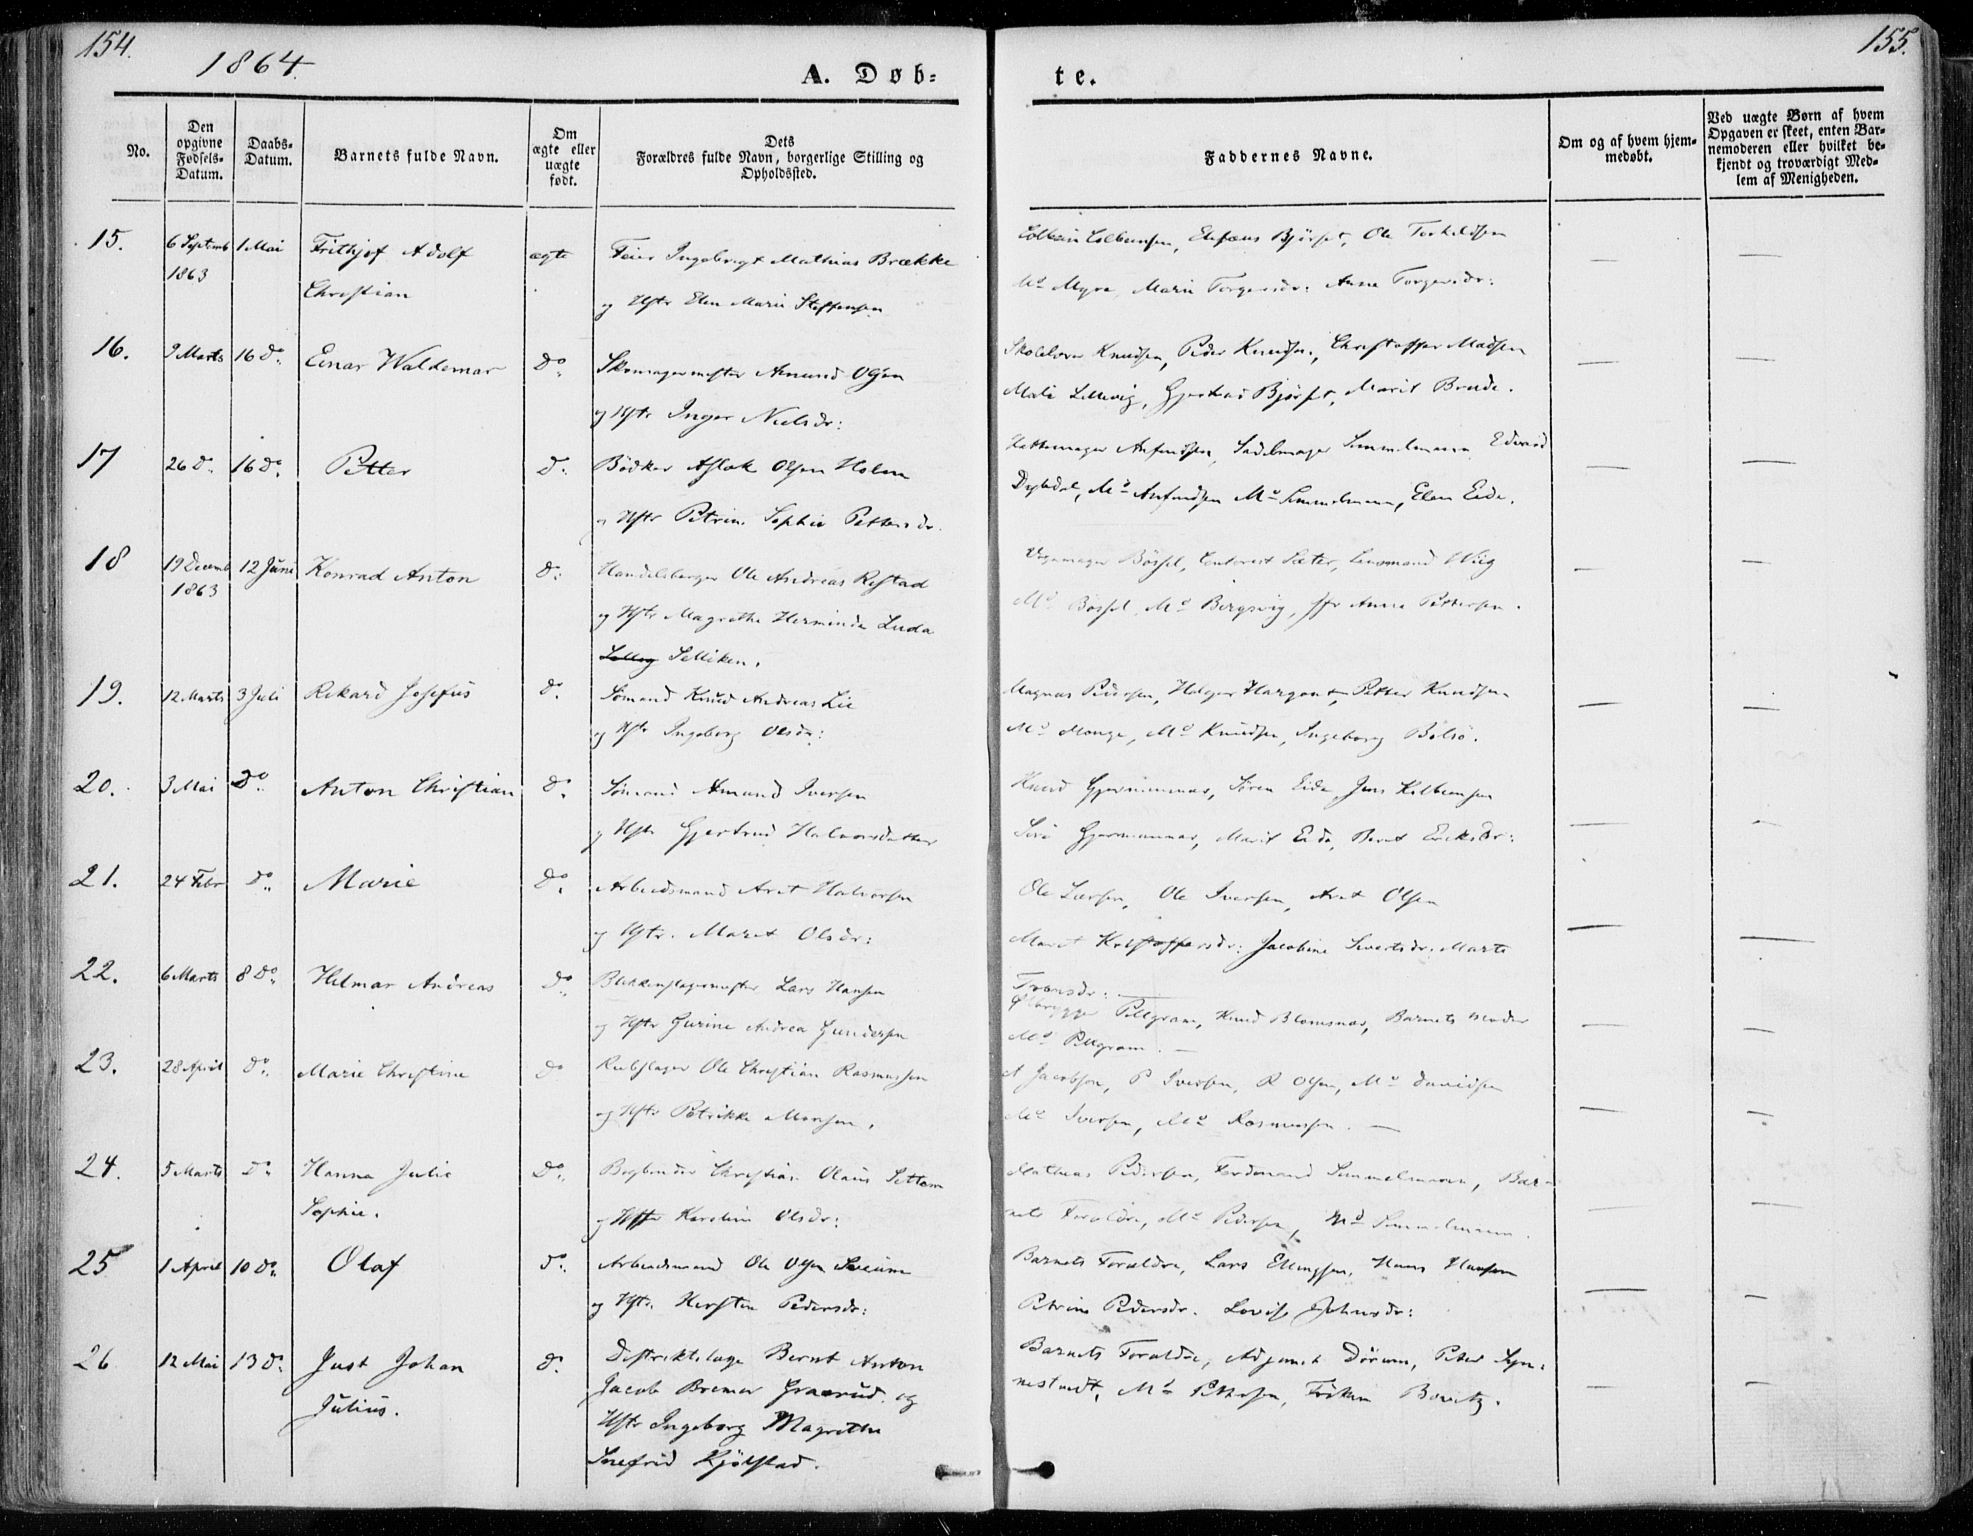 154.
1864.
A. Døb=
No.
Den opgivne Fødsels-Datum.
Daabs-Datum.
Barnets fulde Navn.
Om ægte eller uægte født.
Dets Forældres fulde Navn, borgerlige Stilling og Opholdssted.
15. 6 Septemb 1 Mai Frithjof Adolf ægte Feier Ingebrigt Mathias Brække
1863 Christian og Hstr Elen Marie Steffensen
16. 9 Marts 16 do Einar Waldemar do Skomagermester Amund Olsen
og Hstr Inger Nielsdr:
17 26 d. 16 do Petter d: Bødker Aslak Olsen Holm
og Hstr Petrine Sophie Pettersdr.
18 19 Decemb 12 Juni Konrad Anton d: Handelsborger Ole Andreas Restad
1863 og Hstr Magrethe Herminda Luda
Selliken.
19. 12 Marts 3 Juli Rikard Josefus d. Sømand Knud Andreas Lie
og Hstr Ingeborg Olsdr:
20. 3 Mai Do Anton Christian do Sømand Amund Iversen
og Hstr Gjertrud Halvorsdatter
21. 24 Febr do Marie do Arbeidsmand Arnt Halvorsen
og Hstr. Marit Olsdr:
22. 6 Marts 8 do Hilmar Andreas do Blikkenslagermester Lars Hansen
og Hstr Gurine Andrea Gundersen
23. 28 April do Marie Christine do Rebslager Ole Christian Rasmussen
og Hstr Petrikke Monsen.
24. 5 Marts Do Hanna Julie Do Bogbinder Christian Olaus Settem
Sophie. og Hstr Karoline Olsdr:
25 1 April 10 do Olaf d: Arbeidsmand Ole Olsen Sveium
og Hstr. Kirsten Pedersdr:
26 12 Mai 13 do Just Johan d. Distriktslæge Bernt Anton
Julius. Jacob Bremer Graarud og
Hstr Ingeborg Magrethe
Snefrid Kjølstad.
155.
te.
Faddernes Navne.
Om og af hvem hjemmedøbt.
Ved uægte Børn af hvem Opgaven er skeet, enten Barnemoderen eller hvilket bekjendt og troværdigt Medlem af Menigheden.
Colbein Colbensen, Bjørset, Ole Torkildsen
Md Myra, Marie Torgersdr: Anne Torgersdr:
Skolelærer Knudsen, Peder Knudsen, Christoffer Madsen
Mali Lillevig, Bjørset, Marit Brude.
Hattemager Anfindsen, Sadelmager Simmelmann Edvard
Dybdal, Md Anfindsen Md Simmelmann, Elen Eide.
Vognmager Bøssel, Sæter, Lensmand Wiig
Md Bøssel, Md Bergsvig, Jfr Anna Pettersen.
Magnus Pedersen, Holger Petter Knudsen
Md Monge, Md Knudsen, Ingeborg Bolsø.
Knud Gjermundnæs, Søren Eide, Jens Kolbensen
Siri Gjermundnæs, Marit Eide, Beret Eriksdr:
Ole Larsen, Ole Iversen, Arnt Olsen
Marit Kristoffersdr: Jacobine Sivertsdr: Marta
Tronsdr:
Ølbrygger Pillgram, Knud Blomsnæs, Barnets Moder
Md Pillgram.
A Jacobsen, P Iversen, R Olsen, Md Davidsen
Md Iversen, Md Rasmussen.
Mathias Pedersen, Ferdinand Simmelmann, Bar-
nets Forældre, Md Pedersen, Md Simmelmann.
Barnets Forældre, Lars Ellingsen, Hans Hansen
Petrine Pedersdr. Lovise Johnsdr:
Barnets Forældre, Adjunkt Dørum, Peter Syn-
nestvedt, Md Pettersen, Frøken Bowitz.